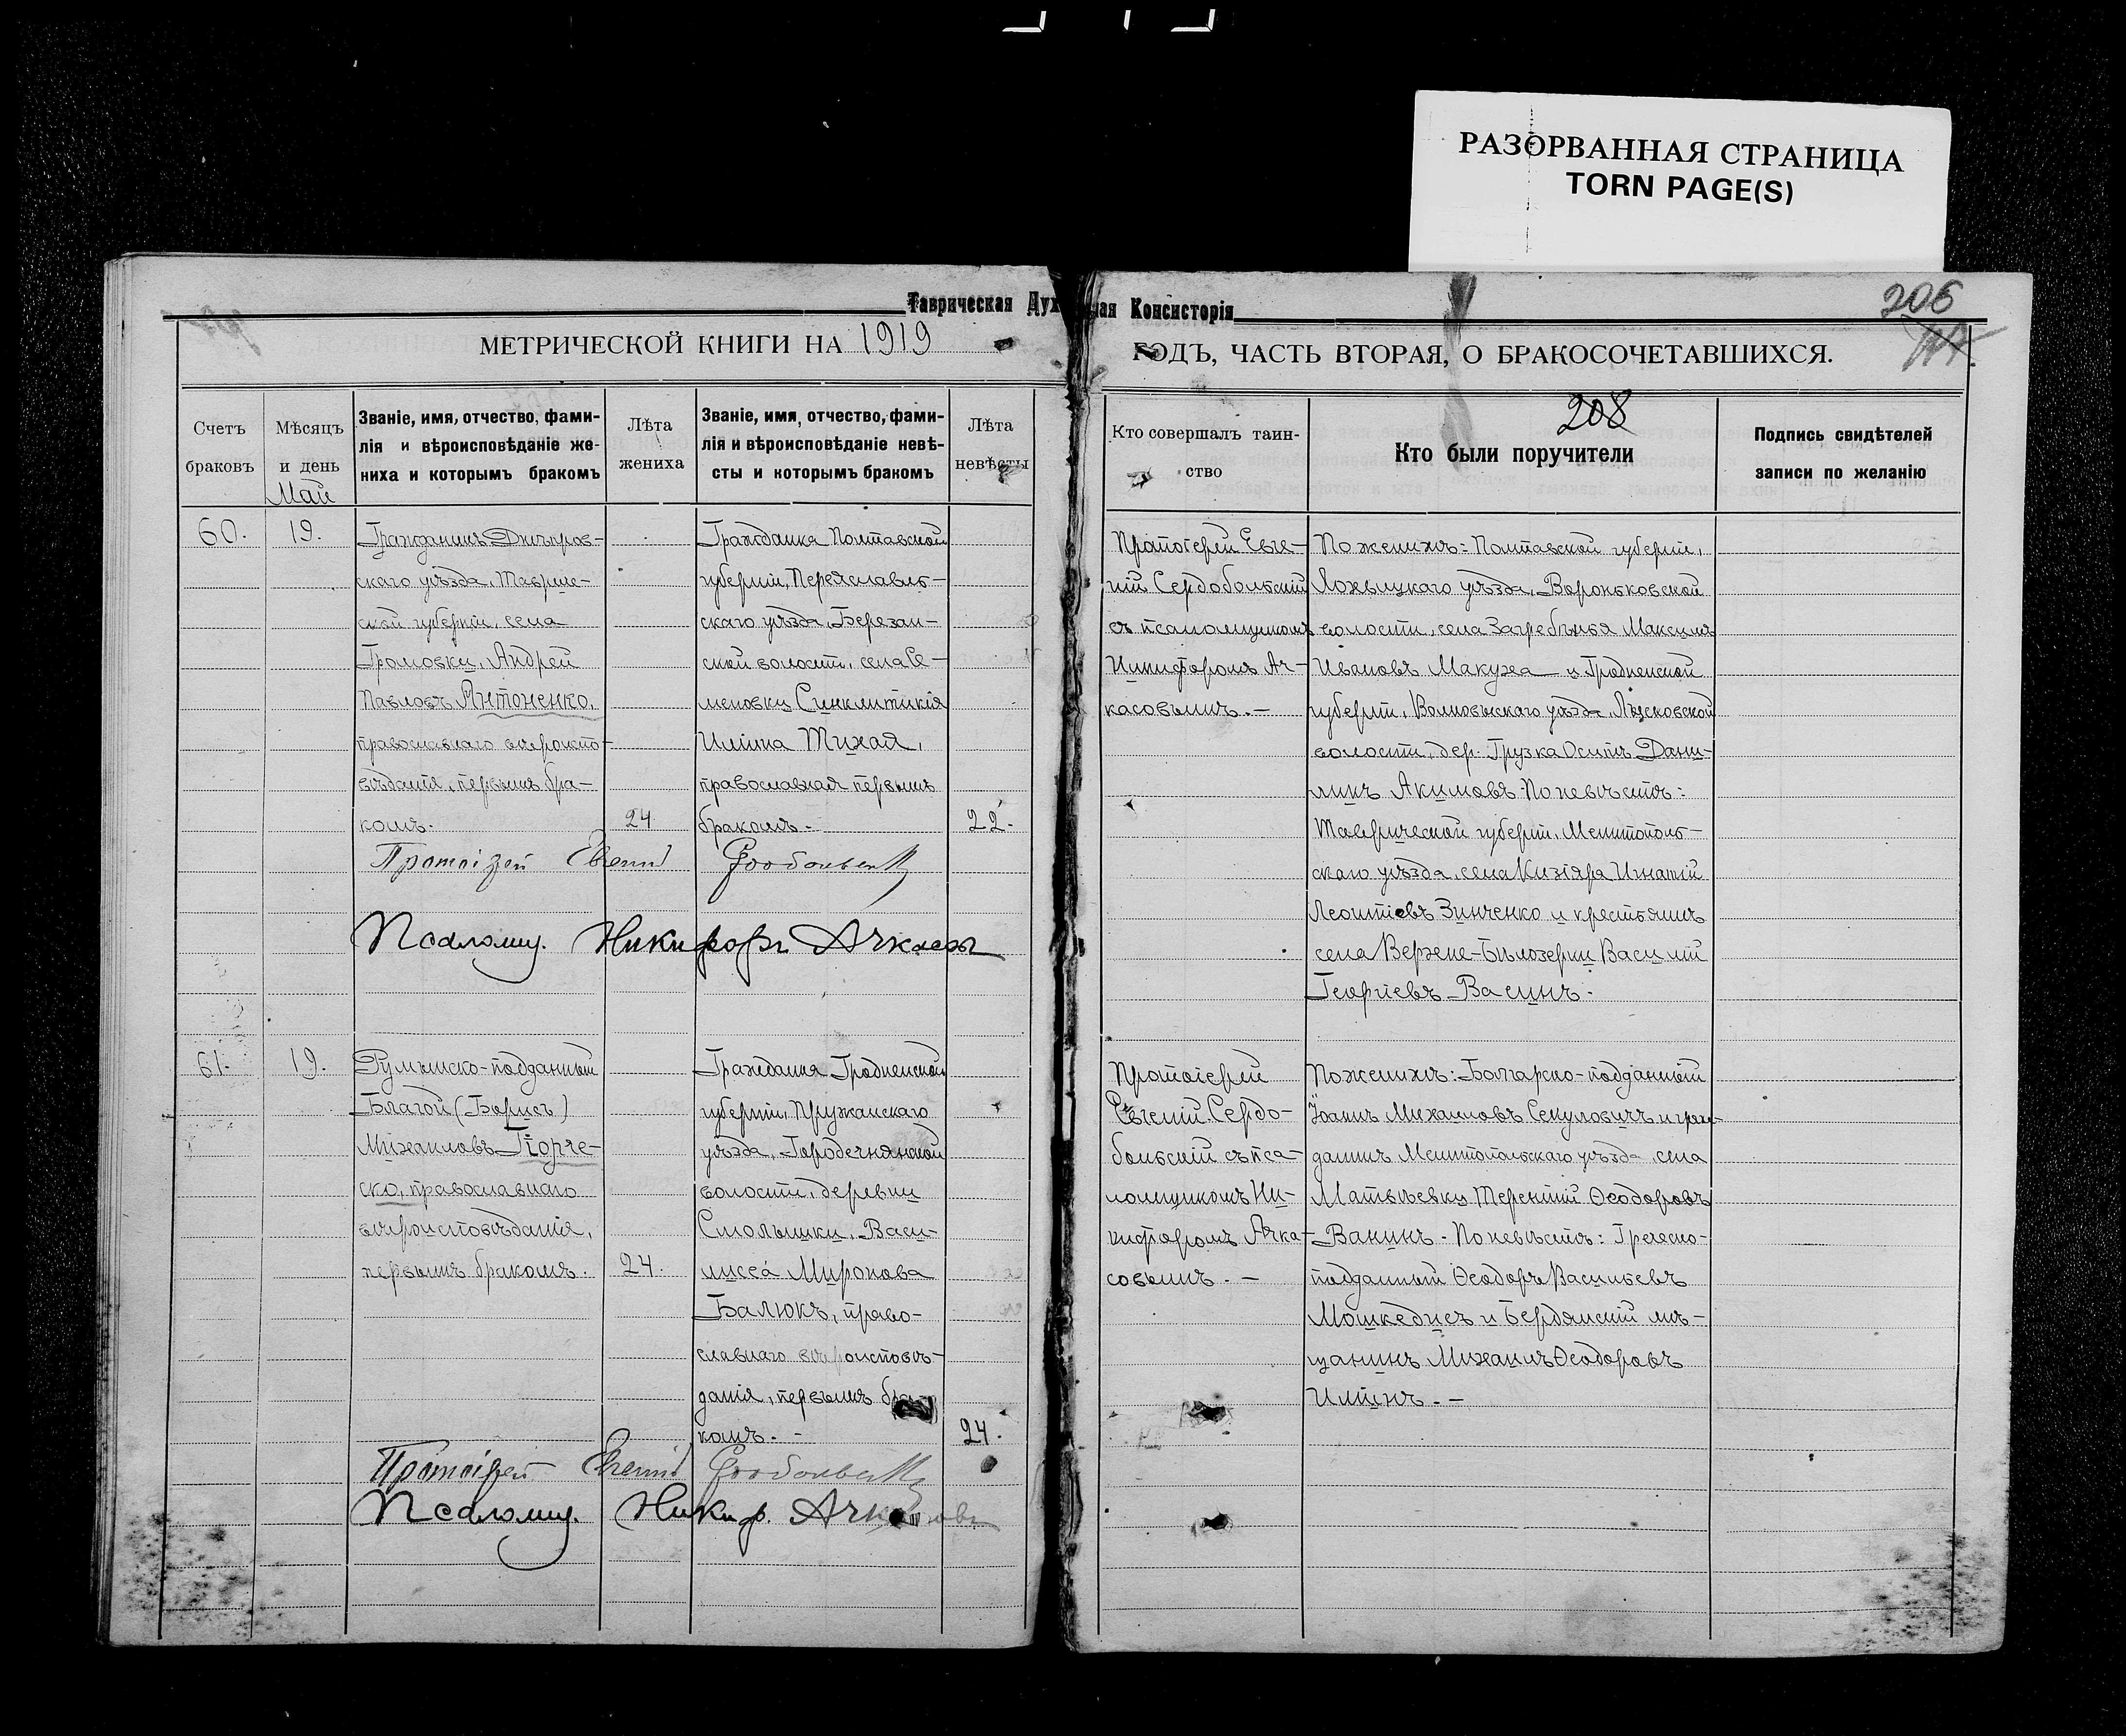 РАЗОРВАННАЯ СТРАНИЦА
TORN PAGE(S)
Таврическая Дух
ная Консисторія
206
МЕТРИЧЕСКОЙ КНИГИ НА 1919
ГОДЪ, ЧАСТЬ ВТОРАЯ, О БРАКОСОЧЕТАВШИХСЯ.
208
Счетъ
браковъ
Мѣсяцъ
и день
Май
Званіе, имя, отчество, фами-
лія и вѣроисповѣданіе же-
ниха и которымъ бракомъ
Лѣта
жениха
Званіе, имя, отчество, фами-
лія и вѣроисповѣданіе невѣ-
сты и которымъ бракомъ
Лѣта
невѣсты
Кто совершалъ таин-
ство
Кто были поручители
Подпись свидѣтелей
записи по желанію
60.
19.
Гражданинъ Днѣпров-
скаго уѣзда, Тавриче-
ской губерніи, села
Громовки, Андрей
Павловъ Антоненко,
православнаго вѣроиспо-
вѣданія, первымъ бра-
комъ.
24
Гражданка Полтавской
губерніи, Переяславль-
скаго уѣзда, Березан-
ской волости, села Се-
меновки Синклитикія
Иліина Тихая,
православная первымъ
бракомъ.-
22.
Протоіерей Евге-
ній Сердобольскій
съ псаломщикомъ
Никифоромъ Ач-
касовымъ.-
По женихѣ: Полтавской губерніи,
Лохвицкаго уѣзда, Воронъковской
волости, села Загребелья Максимъ
Ивановъ Макуха и Гродненской
губерніи, Волковыскаго уѣзда, Лысковской
волости, дер. Грузка Осипъ Дани-
линъ Акимовъ. По невѣстѣ:
Таврической губерніи, Мелитополь-
скаго уѣзда, села Кизіяра Игнатій
Леонтіевъ Зинченко и крестьянинъ
села Верхне-Бѣлозерки Василій
Георгіевъ Васинъ.
Протоіерей Евгеній Сердобольскій
Псаломщ. Никифоръ Ачкасовъ
61.
19.
Румынско-подданный
Благой (Борисъ)
Михаиловъ Гіорге-
ско, православнаго
вѣроисповѣданія,
первымъ бракомъ.
24.
Гражданка Гродненской
губерніи, Пружанскаго
уѣзда, Городечнянской
волости, деревни
Смолышки, Васи-
лисса Миронова
Балюкъ, право-
славнаго вѣроисповѣ-
данія, первымъ бра
комъ.-
24.
Протоіерей
Евгеній Сердо-
больскій съ пса-
ломщикомъ Ни-
кифоромъ Ачка-
совымъ.-
По женихѣ: Болгарско-подданный
Іоаннъ Михаиловъ Секуловичъ и граж-
данинъ Мелитопольскаго уѣзда, села
Матвѣевки Терентій Ѳеодоровъ
Ванинъ. По невѣстѣ: Греческо-
подданный Ѳеодоръ Васильевъ
Мошкедисъ и Бердянскій мѣ-
щанинъ Михаилъ Ѳеодоровъ
Илтинъ.-
Протоіерей Евгеній Сердобольскій
Псаломщ. Никиф. Ачкасовъ